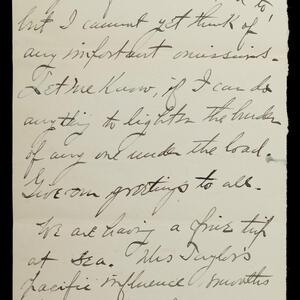 to
but I cannot yet think of
any important omissions.
Let me know, if I can do
anything to lighten the burden
of any one under the load.
Give our greetings to all.
We are having a fine trip
at sea. Mrs Taylor's
pacific influence smooths